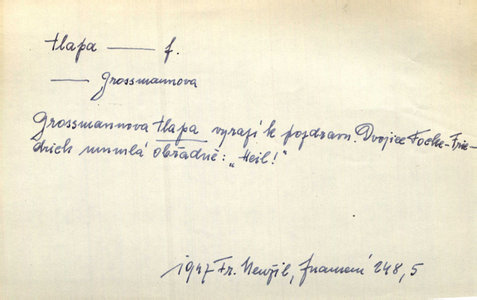 tlapa —— f.
—— Grossmannova
Grossmannova tlapa vyrazí k pozdravu. Dvojice Focke-Frie-
drich mumlá obřadně: „Heil!“
1947 Fr. Neužil, Znamení 248, 5